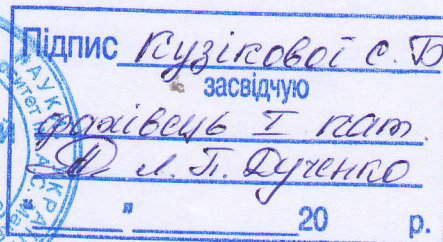 Підпис Кузікової С. Б
засвідчую
фахівець I кат.
Л. П. Дученко
" " 20 р.